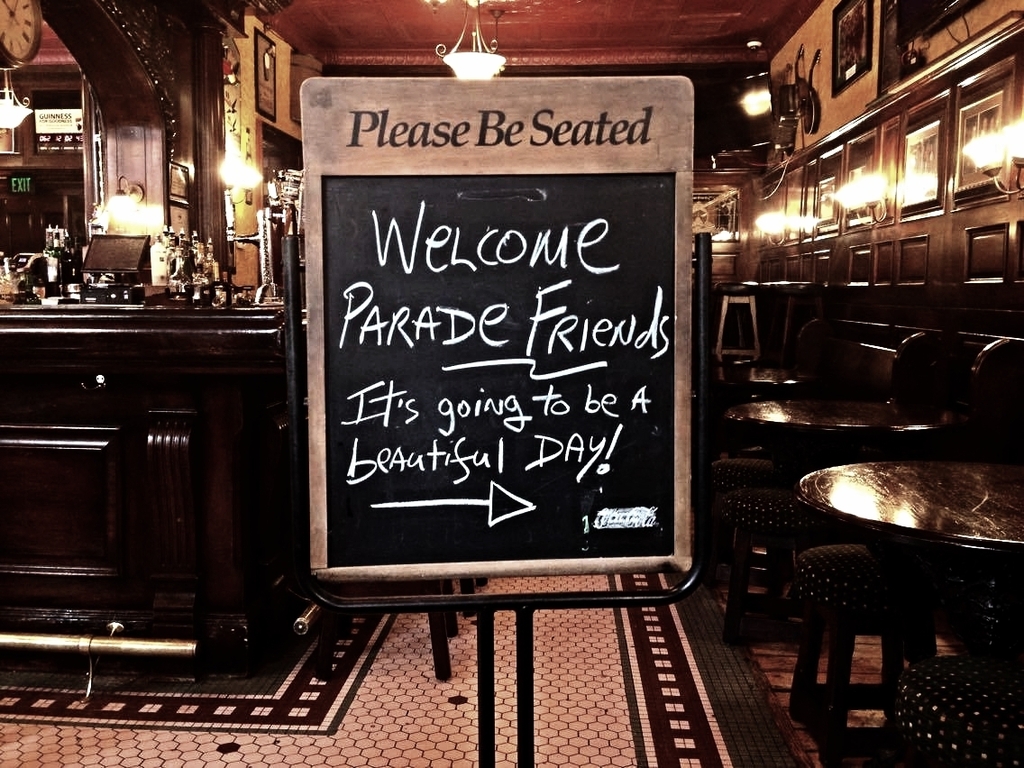 GUINNESS
EXIT
Please Be Seated
WELCOME
PARADE FRIENDS
IT's going to be A
beAutiful DAY!